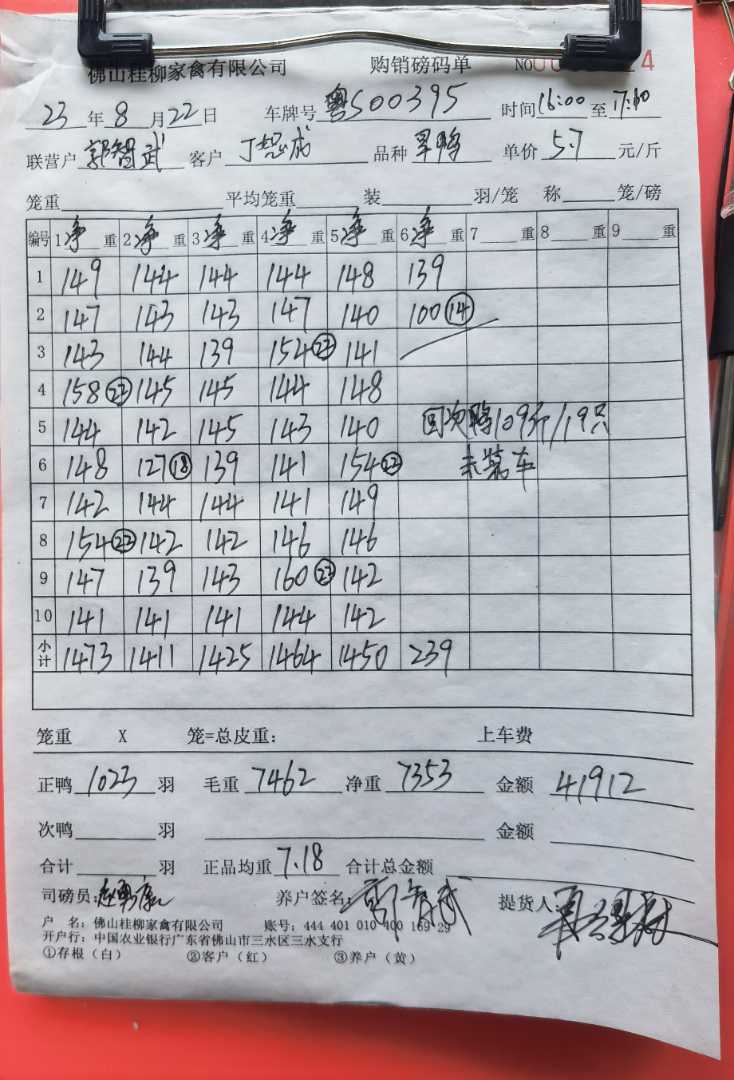 佛山桂柳家禽有限公司 购销磅码单 NO 4
23 年 8 月 22 日 车牌号 粤S00395 时间 16:00 至 17:00
联营户 郭智武 客户 品种 单价 5.7 元/斤
笼重 平均笼重 装 羽/笼 称 笼/磅
编号 1 净 重 2 净 重 3 净 重 4 净 重 5 净 重 6 净 重 7 重 8 重 9 重
1 149 144 144 144 148 139
2 147 143 143 147 140 100 14
3 143 144 139 154 23 141
4 158 23 145 145 144 148
5 144 142 145 143 140 回次鸭109斤/19只
6 148 127 18 139 141 154 22 未装车
7 142 144 144 141 149
8 154 22 142 142 146 146
9 147 139 143 160 23 142
10 141 141 141 144 142
小计 1473 1411 1425 1464 1450 239
笼重 X 笼=总皮重: 上车费
正鸭 1023 羽 毛重 7462 净重 7353 金额 41912
次鸭 羽 金额
合计 羽 正品均重 7.18 合计总金额
司磅员: 养户签名: 提货人:
户 名: 佛山桂柳家禽有限公司 账号: 444 401 010 400 169 29
开户行: 中国农业银行广东省佛山市三水区三水支行
①存根(白) ②客户(红) ③养户(黄)